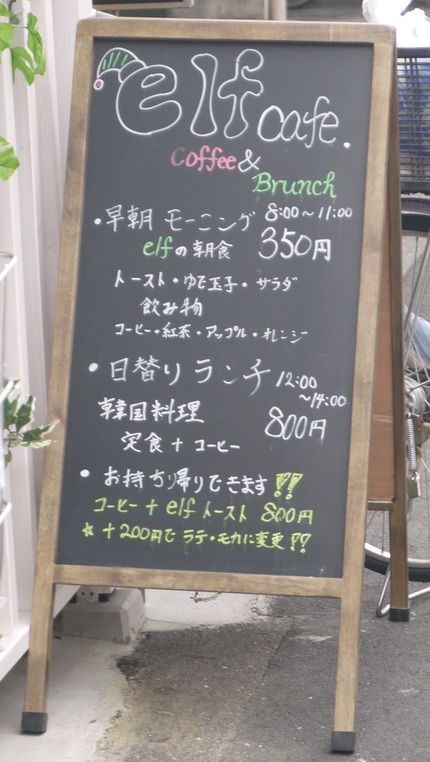 elf cafe.
Coffee &
Brunch
・早朝 モーニング 8:00〜11:00
elfの朝食 350円
トースト・ゆで玉子・サラダ
飲み物
コーヒー・紅茶・アップル・オレンジ
・日替り ランチ 12:00
〜14:00
韓国料理 800円
定食 + コーヒー
・お持ち帰りできます!!
コーヒー + elf トースト 800円
☆ +200円で ラテ・モカに変更!!